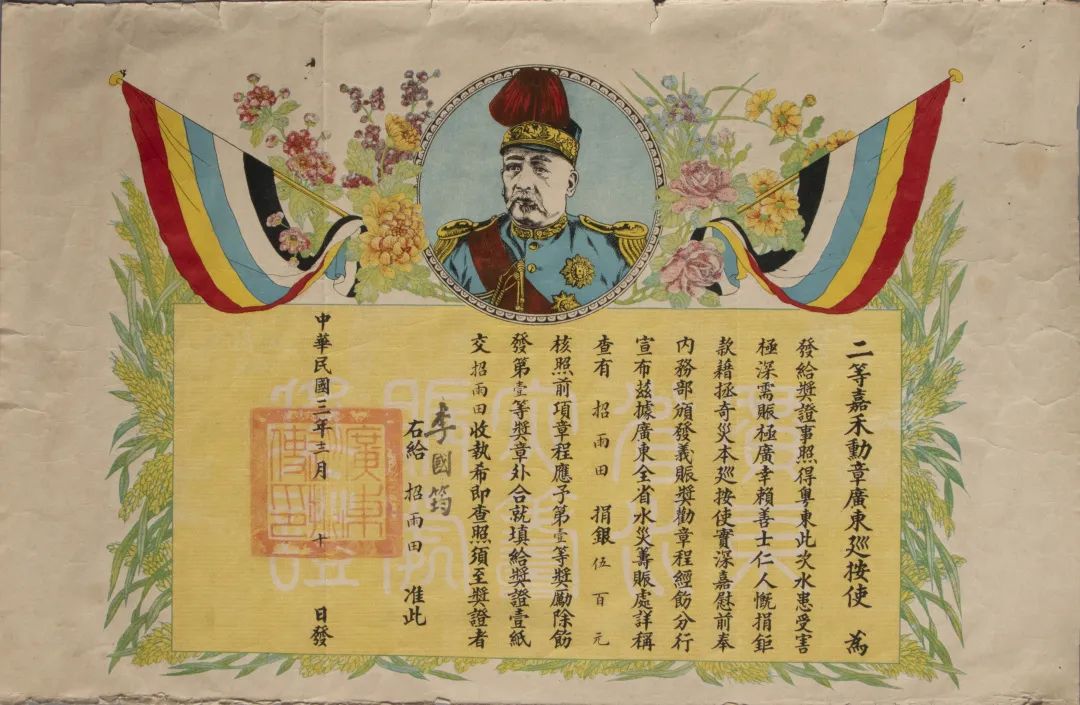 二等嘉禾勳章廣東巡按使 為
發給獎證事照得粵東此次水患受害
極深需賑極廣幸賴善士仁人慨捐鉅
款藉拯奇災本巡按使實深嘉慰前奉
內務部頒發義賑獎勸章程經飭分行
宣布茲據廣東全省水災籌賑處詳稱
查有 招雨田 捐銀 伍百元
核照前項章程應予第壹等獎勵除飭
發第壹等獎章外合就填給獎證壹紙
交招雨田收執希即查照須至獎證者
李國筠
右給 招雨田 准此
中華民國三年 月 十 日發